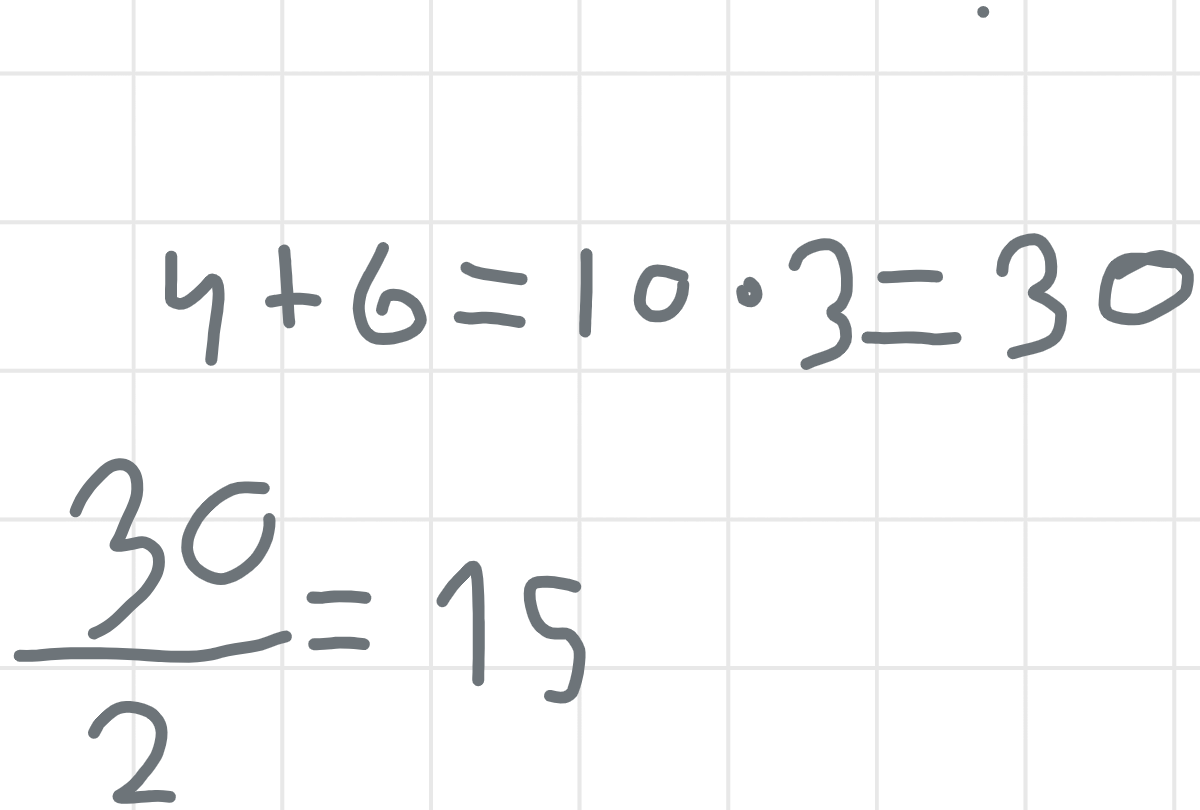 4+6=10·3=30
30/2=15